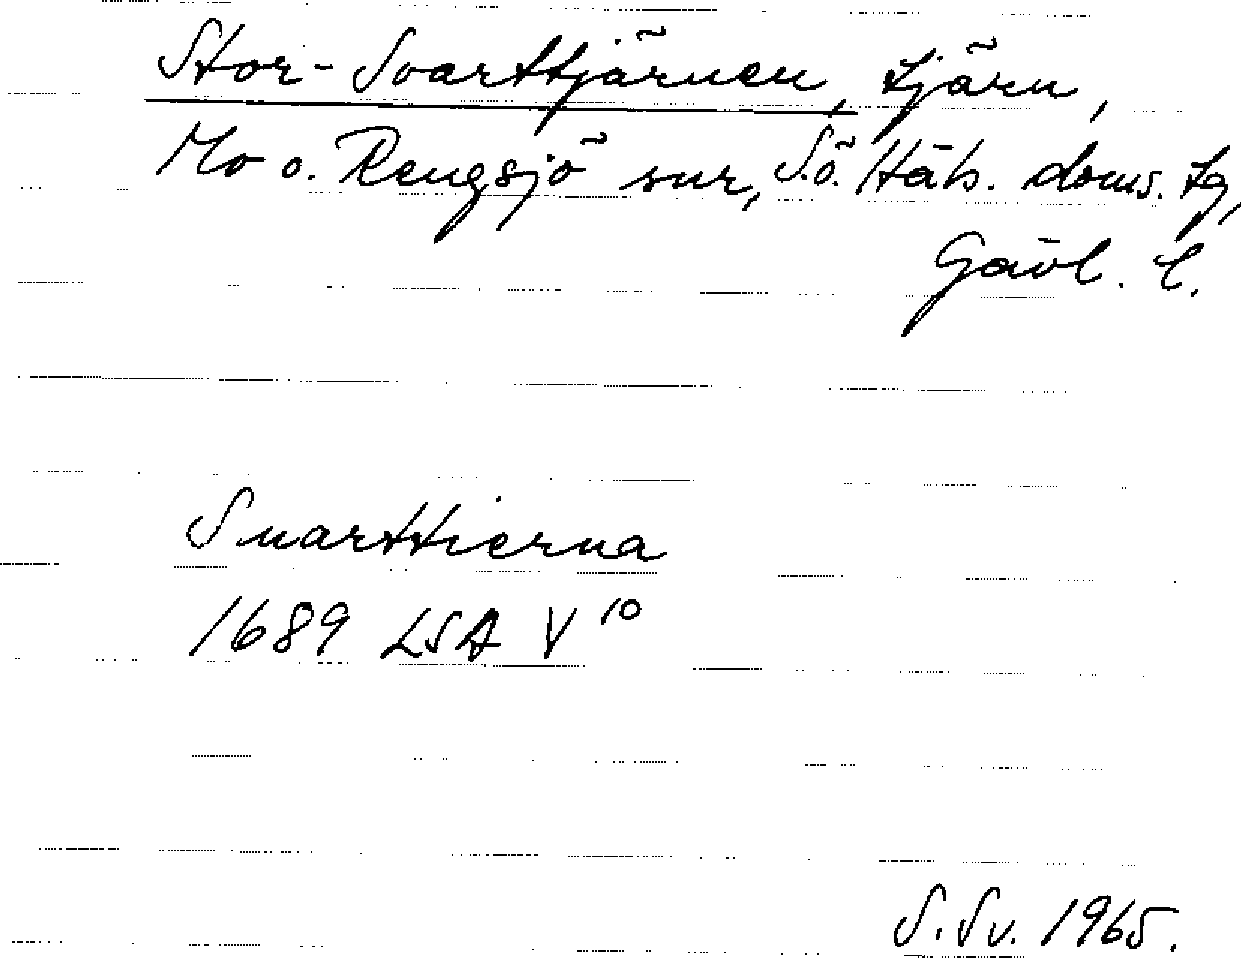 Stor-Svarttjärnen, tjärn,
Mo o. Rengsjö snr, S.ö. Häls. doms. tg,
Gävl. l.
Suarttierna
1689 LSA V 10
S. Sv. 1965.